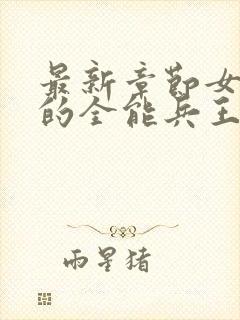 最新章节女
的全能兵王
雨星猪